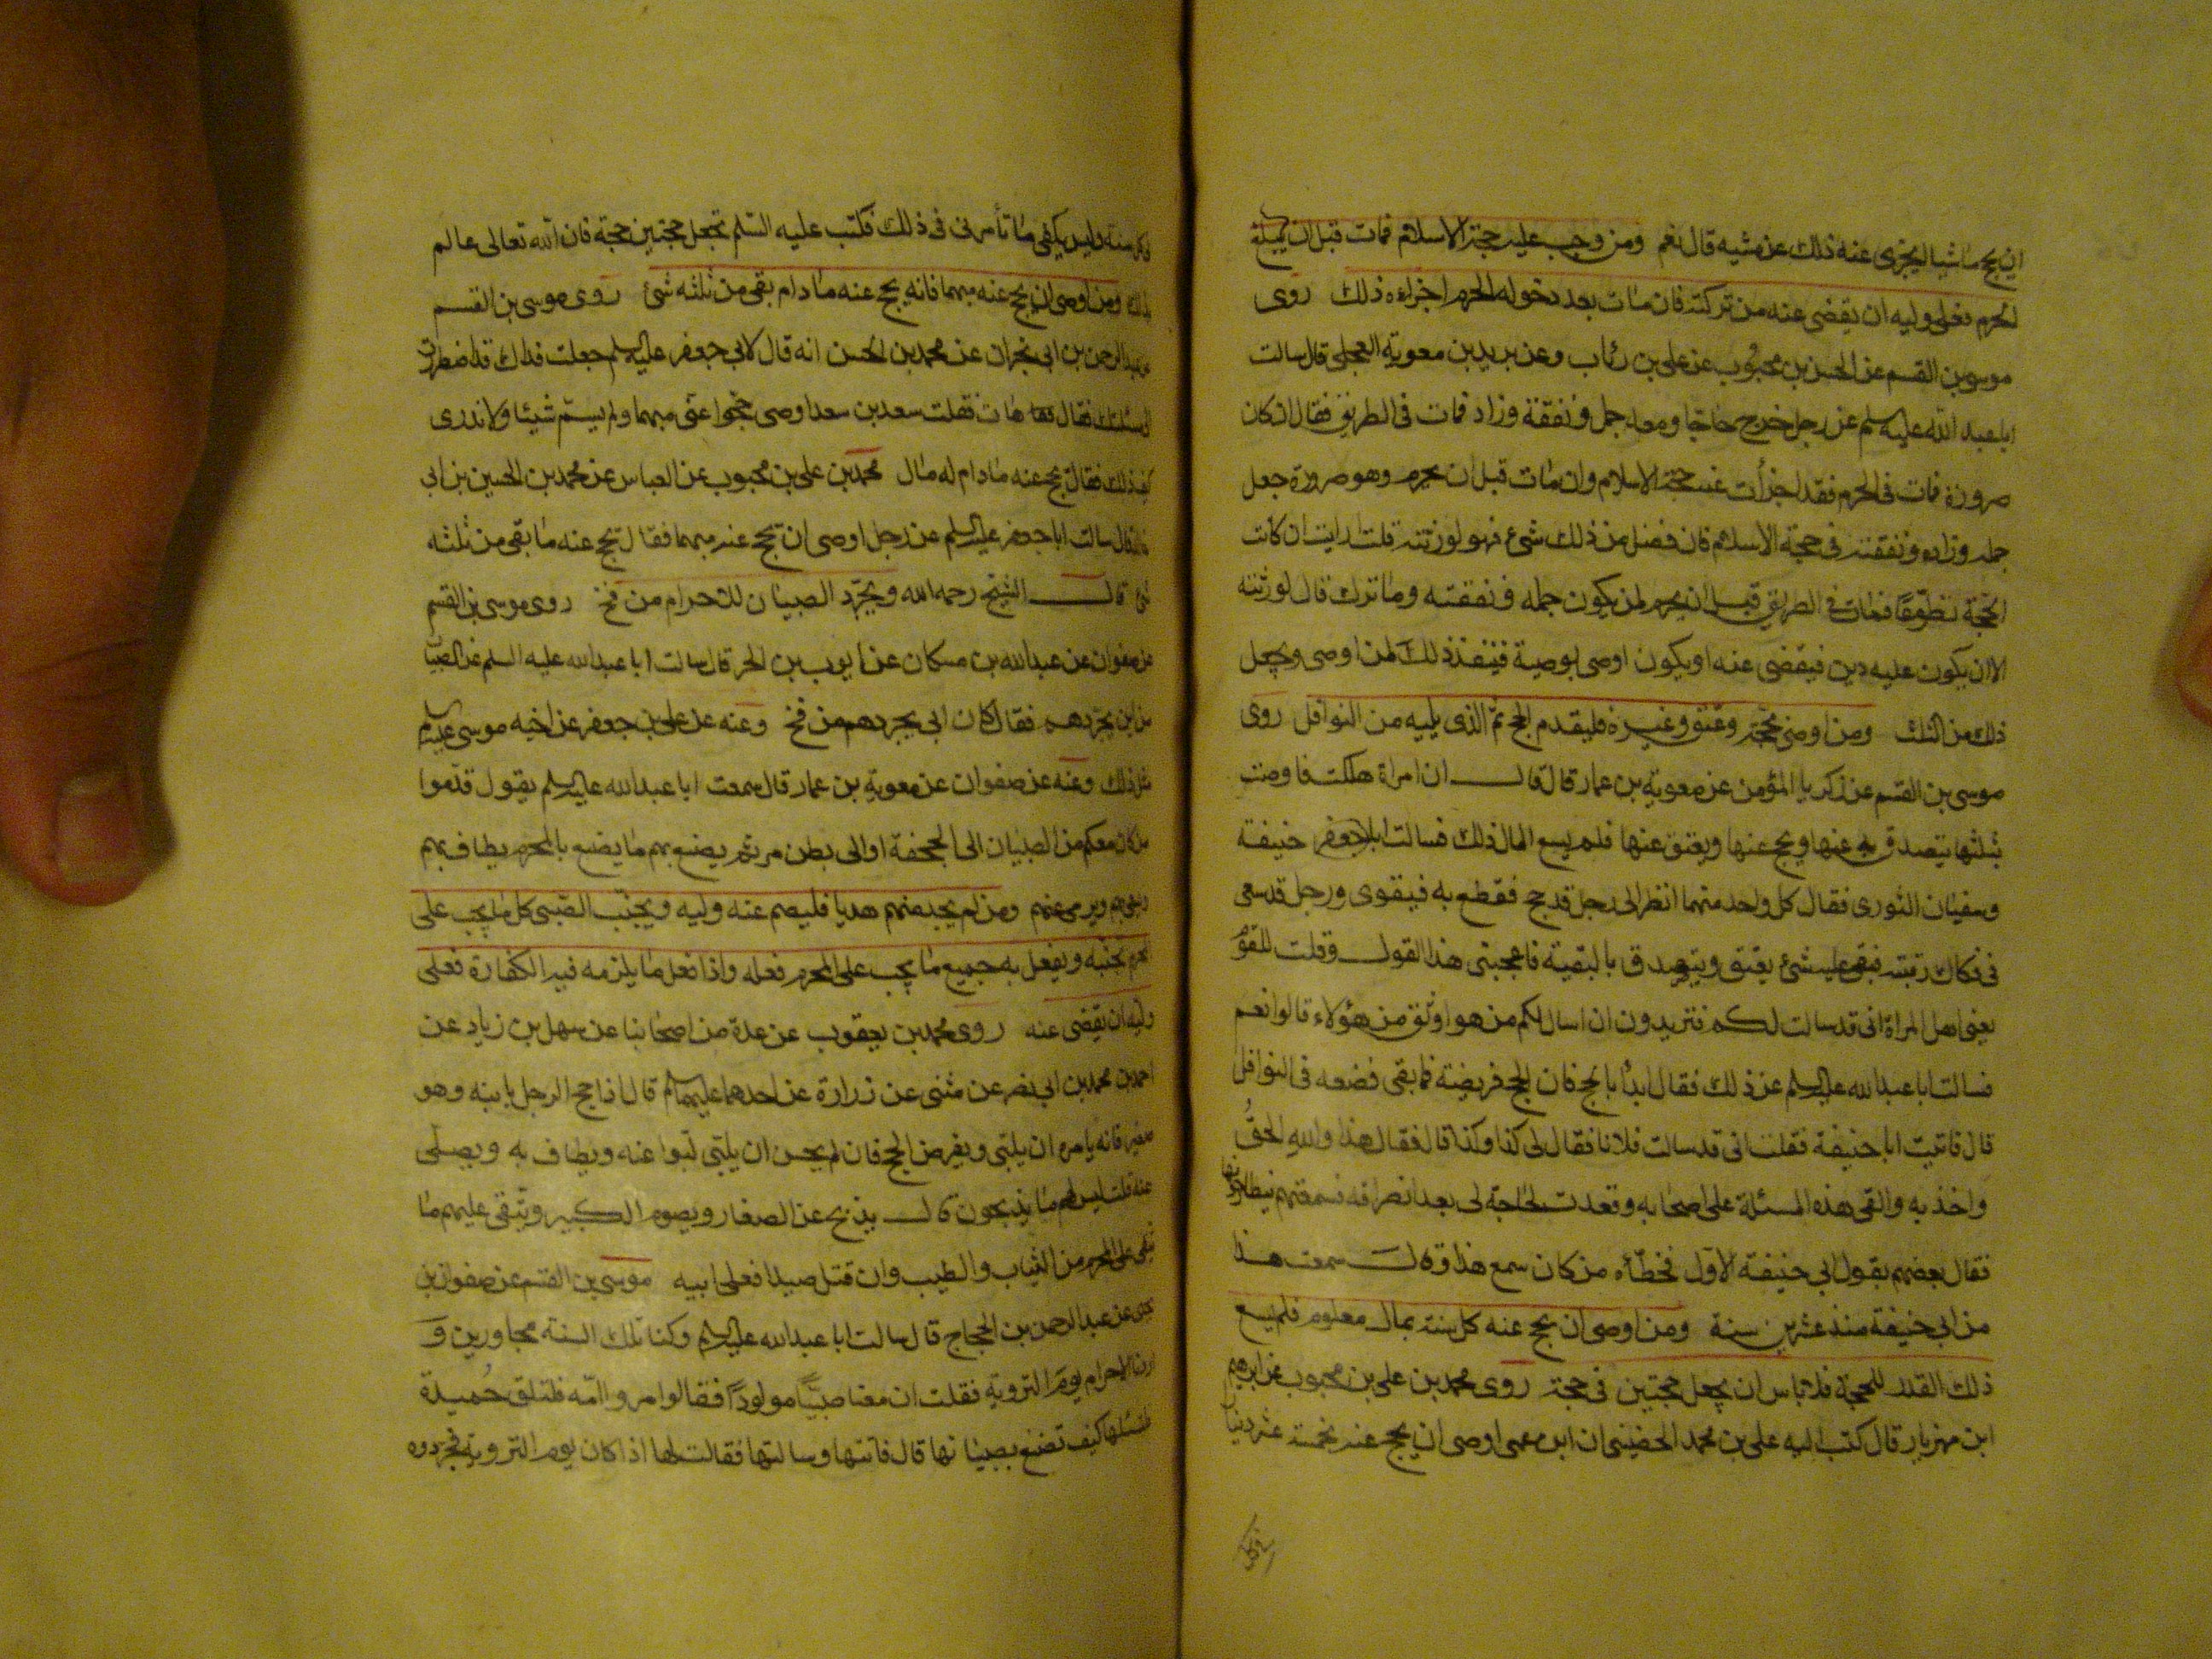 ان يحج ماشيا ايجزى عنه ذلك عن مشيه قال نعم ومن وجب عليه حجة الاسلام فمات قبل ان يدخل
الحرم فعلى وليه ان يقضى عنه من تركته فان مات بعد دخوله الحرم اجزاءه ذلك روى
موسى بن القسم عن الحسن بن محبوب عن على بن رئاب وعن بريد بن معوية العجلى قال سالت
ابا عبد الله عليه السلم عن رجل خرج حاجا ومعه جمل ونفقة وزاد فمات فى الطريق فقال ان كان
صرورة فمات فى الحرم فقد اجزأت عنه حجة الاسلام وان مات قبل ان يحرم وهو صرورة جعل
جمله وزاده ونفقته فى حجة الاسلام فان فضل من ذلك شئ فهو لورثته قلت ارايت ان كانت
الحجة تطوعا فمات فى الطريق قبل ان يحرم لمن يكون جمله ونفقته وما ترك قال لورثته
الا ان يكون عليه دين فيقضى عنه او يكون اوصى بوصية فينفذ ذلك لمن اوصى ويجعل
ذلك من الثلث ومن اوصى بحجة وعتق وغيره فليقدم الحج ثم الذى يليه من النوافل روى
موسى بن القسم عن زكريا المؤمن عن معوية بن عمار قال قال ان امراة هلكت فاوصت
بثلثها يتصدق به عنها ويحج عنها ويعتق عنها فلم يسع المال ذلك فسالت ابا حنيفة
وسفيان الثورى فقال كل واحد منهما انظر الى رجل قد حج فقطع به فيقوى ورجل قد سعى
فى فكاك رقبته فبقى عليه شئ يعتق ويتصدق بالبقية فاعجبنى هذا القول وقلت للقوم
يعنى اهل المراة انى قد سالت لكم فتريدون ان اسال لكم من هو اوثق من هؤلاء قالوا نعم
فسالت ابا عبد الله عليه السلم عن ذلك فقال ابدأ بالحج فان الحج فريضة فما بقى فضعه فى النوافل
قال فاتيت ابا حنيفة فقلت انى قد سالت فلانا فقال لى كذا وكذا قال فقال هذا والله الحق
واخذ به والقى هذه المسئلة على اصحابه وقعدت لحاجة لى بعد انصرافه فسمعتهم يتطارحونها
فقال بعضهم بقول ابى حنيفة الاول فخطأه من كان سمع هذا وقال سمعت هذا
من ابى حنيفة منذ عشرين سنة ومن اوصى ان يحج عنه كل سنة بمال معلوم فلم يسع
ذلك القدر للحجة فلا باس ان يجعل حجتين فى حجة روى محمد بن على بن محبوب عن ابرهيم
ابن مهزيار قال كتب اليه على بن محمد الحضينى ان ابن عمى اوصى ان يحج عنه بخمسة عشر دينارا
فى كل سنة وليس يكفى ما تأمرنى فى ذلك فكتب عليه السلم تجعل حجتين حجة فان الله تعالى عالم
بذلك ومن اوصى ان يحج عنه مبهما فانه يحج عنه ما دام بقى من ثلثه شئ روى موسى بن القسم
عن عبد الرحمن بن ابى نجران عن محمد بن الحسن انه قال لابى جعفر عليه السلم جعلت فداك قد اضطررت
الى مسئلتك فقال هات فقلت سعد بن سعد اوصى حجوا عنى مبهما ولم يسم شيئا ولا ندرى
كيف ذلك فقال يحج عنه ما دام له مال محمد بن على بن محبوب عن العباس عن محمد بن الحسين بن ابى
خالد قال سالت ابا جعفر عليه السلم عن رجل اوصى ان يحج عنه مبهما فقال يحج عنه ما بقى من ثلثه
شئ قال الشيخ رحمه الله ويجرد الصبيان للاحرام من فخ روى موسى بن القسم
عن صفوان عن عبد الله بن مسكان عن ايوب بن الحر قال سالت ابا عبد الله عليه السلم عن الصبيان
من اين يجردهم فقال كان ابى يجردهم من فخ وعنه عن على بن جعفر عن اخيه موسى عليه السلم
مثل ذلك وعنه عن صفوان عن معوية بن عمار قال سمعت ابا عبد الله عليه السلم يقول قدموا
من كان معكم من الصبيان الى الجحفة او الى بطن مر ثم يصنع بهم ما يصنع بالمحرم يطاف بهم
ويسعى بهم ويرمى عنهم ومن لم يجد منهم هديا فليصم عنه وليه ويجنب الصبى كل ما يجب على
المحرم تجنبه ويفعل به جميع ما يجب على المحرم فعله واذا فعل ما يلزمه فيه الكفارة فعلى
وليه ان يقضى عنه روى محمد بن يعقوب عن عدة من اصحابنا عن سهل بن زياد عن
احمد بن محمد بن ابى نصر عن مثنى عن زرارة عن احدهما عليهما السلم قال اذا حج الرجل بابنه وهو
صغير فانه يامره ان يلبى ويفرض الحج فان لم يحسن ان يلبى لبوا عنه ويطاف به ويصلى
عنه قلت ليس لهم ما يذبحون قال يذبح عن الصغار ويصوم الكبير ويتقى عليهم ما
يتقى على المحرم من الثياب والطيب وان قتل صيدا فعلى ابيه موسى بن القسم عن صفوان بن
يحيى عن عبد الرحمن بن الحجاج قال سالت ابا عبد الله عليه السلم وكنا تلك السنة مجاورين و
اردنا الاحرام يوم التروية فقلت ان معنا صبيا مولودا فقال مروا امه فلتلق حميدة
فلتسئلها كيف تصنع بصبيانها قال فاتتها وسالتها فقالت لها اذا كان يوم التروية فجردوه